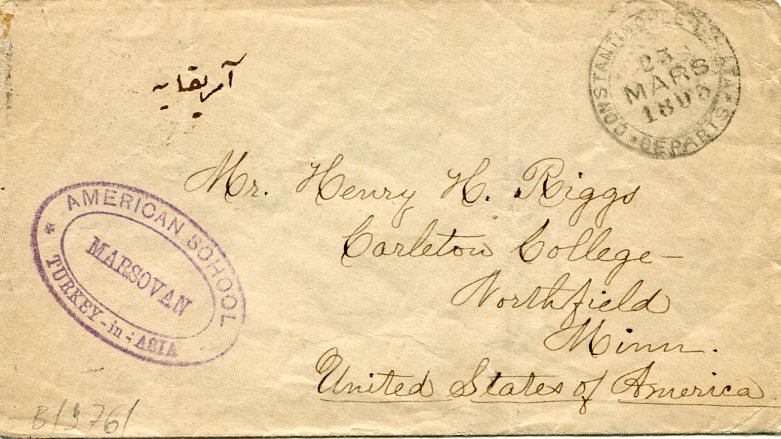 آمریقایه
CONSTANTINOPLE
DEPARTS
23
MARS
Mr. Henry H. Riggs
Carleton College –
Northfield
Minn.
United States of America
* AMERICAN SCHOOL
MARSOVAN
TURKEY-in-ASIA